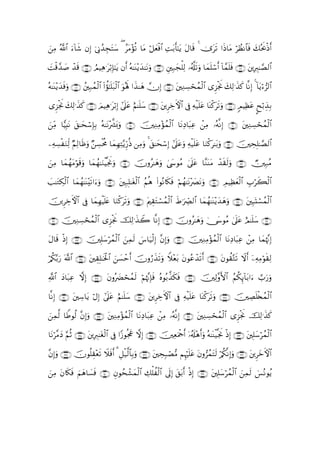 أَذْبَحُكَ فَٱنظُرْ مَاذَا تَرَىٰ ۚ قَالَ يَٰٓأَبَتِ ٱفْعَلْ مَا تُؤْمَرُ ۖ سَتَجِدُنِىٓ إِن شَآءَ ٱللَّهُ مِنَ
ٱلصَّٰبِرِينَ ۝ فَلَمَّآ أَسْلَمَا وَتَلَّهُۥ لِلْجَبِينِ ۝ وَنَٰدَيْنَٰهُ أَن يَٰٓإِبْرَٰهِيمُ ۝ قَدْ صَدَّقْتَ
ٱلرُّءْيَآ ۚ إِنَّا كَذَٰلِكَ نَجْزِى ٱلْمُحْسِنِينَ ۝ إِنَّ هَٰذَا لَهُوَ ٱلْبَلَٰٓؤُا۟ ٱلْمُبِينُ ۝ وَفَدَيْنَٰهُ
بِذِبْحٍ عَظِيمٍ ۝ وَتَرَكْنَا عَلَيْهِ فِى ٱلْءَاخِرِينَ ۝ سَلَٰمٌ عَلَىٰٓ إِبْرَٰهِيمَ ۝ كَذَٰلِكَ نَجْزِى
ٱلْمُحْسِنِينَ ۝ إِنَّهُۥ مِنْ عِبَادِنَا ٱلْمُؤْمِنِينَ ۝ وَبَشَّرْنَٰهُ بِإِسْحَٰقَ نَبِيًّا مِّنَ
ٱلصَّٰلِحِينَ ۝ وَبَٰرَكْنَا عَلَيْهِ وَعَلَىٰٓ إِسْحَٰقَ ۚ وَمِن ذُرِّيَّتِهِمَا مُحْسِنٌ وَظَالِمٌ لِّنَفْسِهِۦ
مُبِينٌ ۝ وَلَقَدْ مَنَنَّا عَلَىٰ مُوسَىٰ وَهَٰرُونَ ۝ وَنَجَّيْنَٰهُمَا وَقَوْمَهُمَا مِنَ
ٱلْكَرْبِ ٱلْعَظِيمِ ۝ وَنَصَرْنَٰهُمْ فَكَانُوا۟ هُمُ ٱلْغَٰلِبِينَ ۝ وَءَاتَيْنَٰهُمَا ٱلْكِتَٰبَ
ٱلْمُسْتَبِينَ ۝ وَهَدَيْنَٰهُمَا ٱلصِّرَٰطَ ٱلْمُسْتَقِيمَ ۝ وَتَرَكْنَا عَلَيْهِمَا فِى ٱلْءَاخِرِينَ ۝
سَلَٰمٌ عَلَىٰ مُوسَىٰ وَهَٰرُونَ ۝ إِنَّا كَذَٰلِكَ نَجْزِى ٱلْمُحْسِنِينَ ۝
إِنَّهُمَا مِنْ عِبَادِنَا ٱلْمُؤْمِنِينَ ۝ وَإِنَّ إِلْيَاسَ لَمِنَ ٱلْمُرْسَلِينَ ۝ إِذْ قَالَ
لِقَوْمِهِۦٓ أَلَا تَتَّقُونَ ۝ أَتَدْعُونَ بَعْلًا وَتَذَرُونَ أَحْسَنَ ٱلْخَٰلِقِينَ ۝ ٱللَّهَ رَبَّكُمْ
وَرَبَّ ءَابَآئِكُمُ ٱلْأَوَّلِينَ ۝ فَكَذَّبُوهُ فَإِنَّهُمْ لَمُحْضَرُونَ ۝ إِلَّا عِبَادَ ٱللَّهِ
ٱلْمُخْلَصِينَ ۝ وَتَرَكْنَا عَلَيْهِ فِى ٱلْءَاخِرِينَ ۝ سَلَٰمٌ عَلَىٰٓ إِلْ يَاسِينَ ۝ إِنَّا
كَذَٰلِكَ نَجْزِى ٱلْمُحْسِنِينَ ۝ إِنَّهُۥ مِنْ عِبَادِنَا ٱلْمُؤْمِنِينَ ۝ وَإِنَّ لُوطًا لَّمِنَ
ٱلْمُرْسَلِينَ ۝ إِذْ نَجَّيْنَٰهُ وَأَهْلَهُۥٓ أَجْمَعِينَ ۝ إِلَّا عَجُوزًا فِى ٱلْغَٰبِرِينَ ۝ ثُمَّ دَمَّرْنَا
ٱلْءَاخَرِينَ ۝ وَإِنَّكُمْ لَتَمُرُّونَ عَلَيْهِم مُّصْبِحِينَ ۝ وَبِٱلَّيْلِ ۗ أَفَلَا تَعْقِلُونَ ۝ وَإِنَّ
يُونُسَ لَمِنَ ٱلْمُرْسَلِينَ ۝ إِذْ أَبَقَ إِلَى ٱلْفُلْكِ ٱلْمَشْحُونِ ۝ فَسَاهَمَ فَكَانَ مِنَ